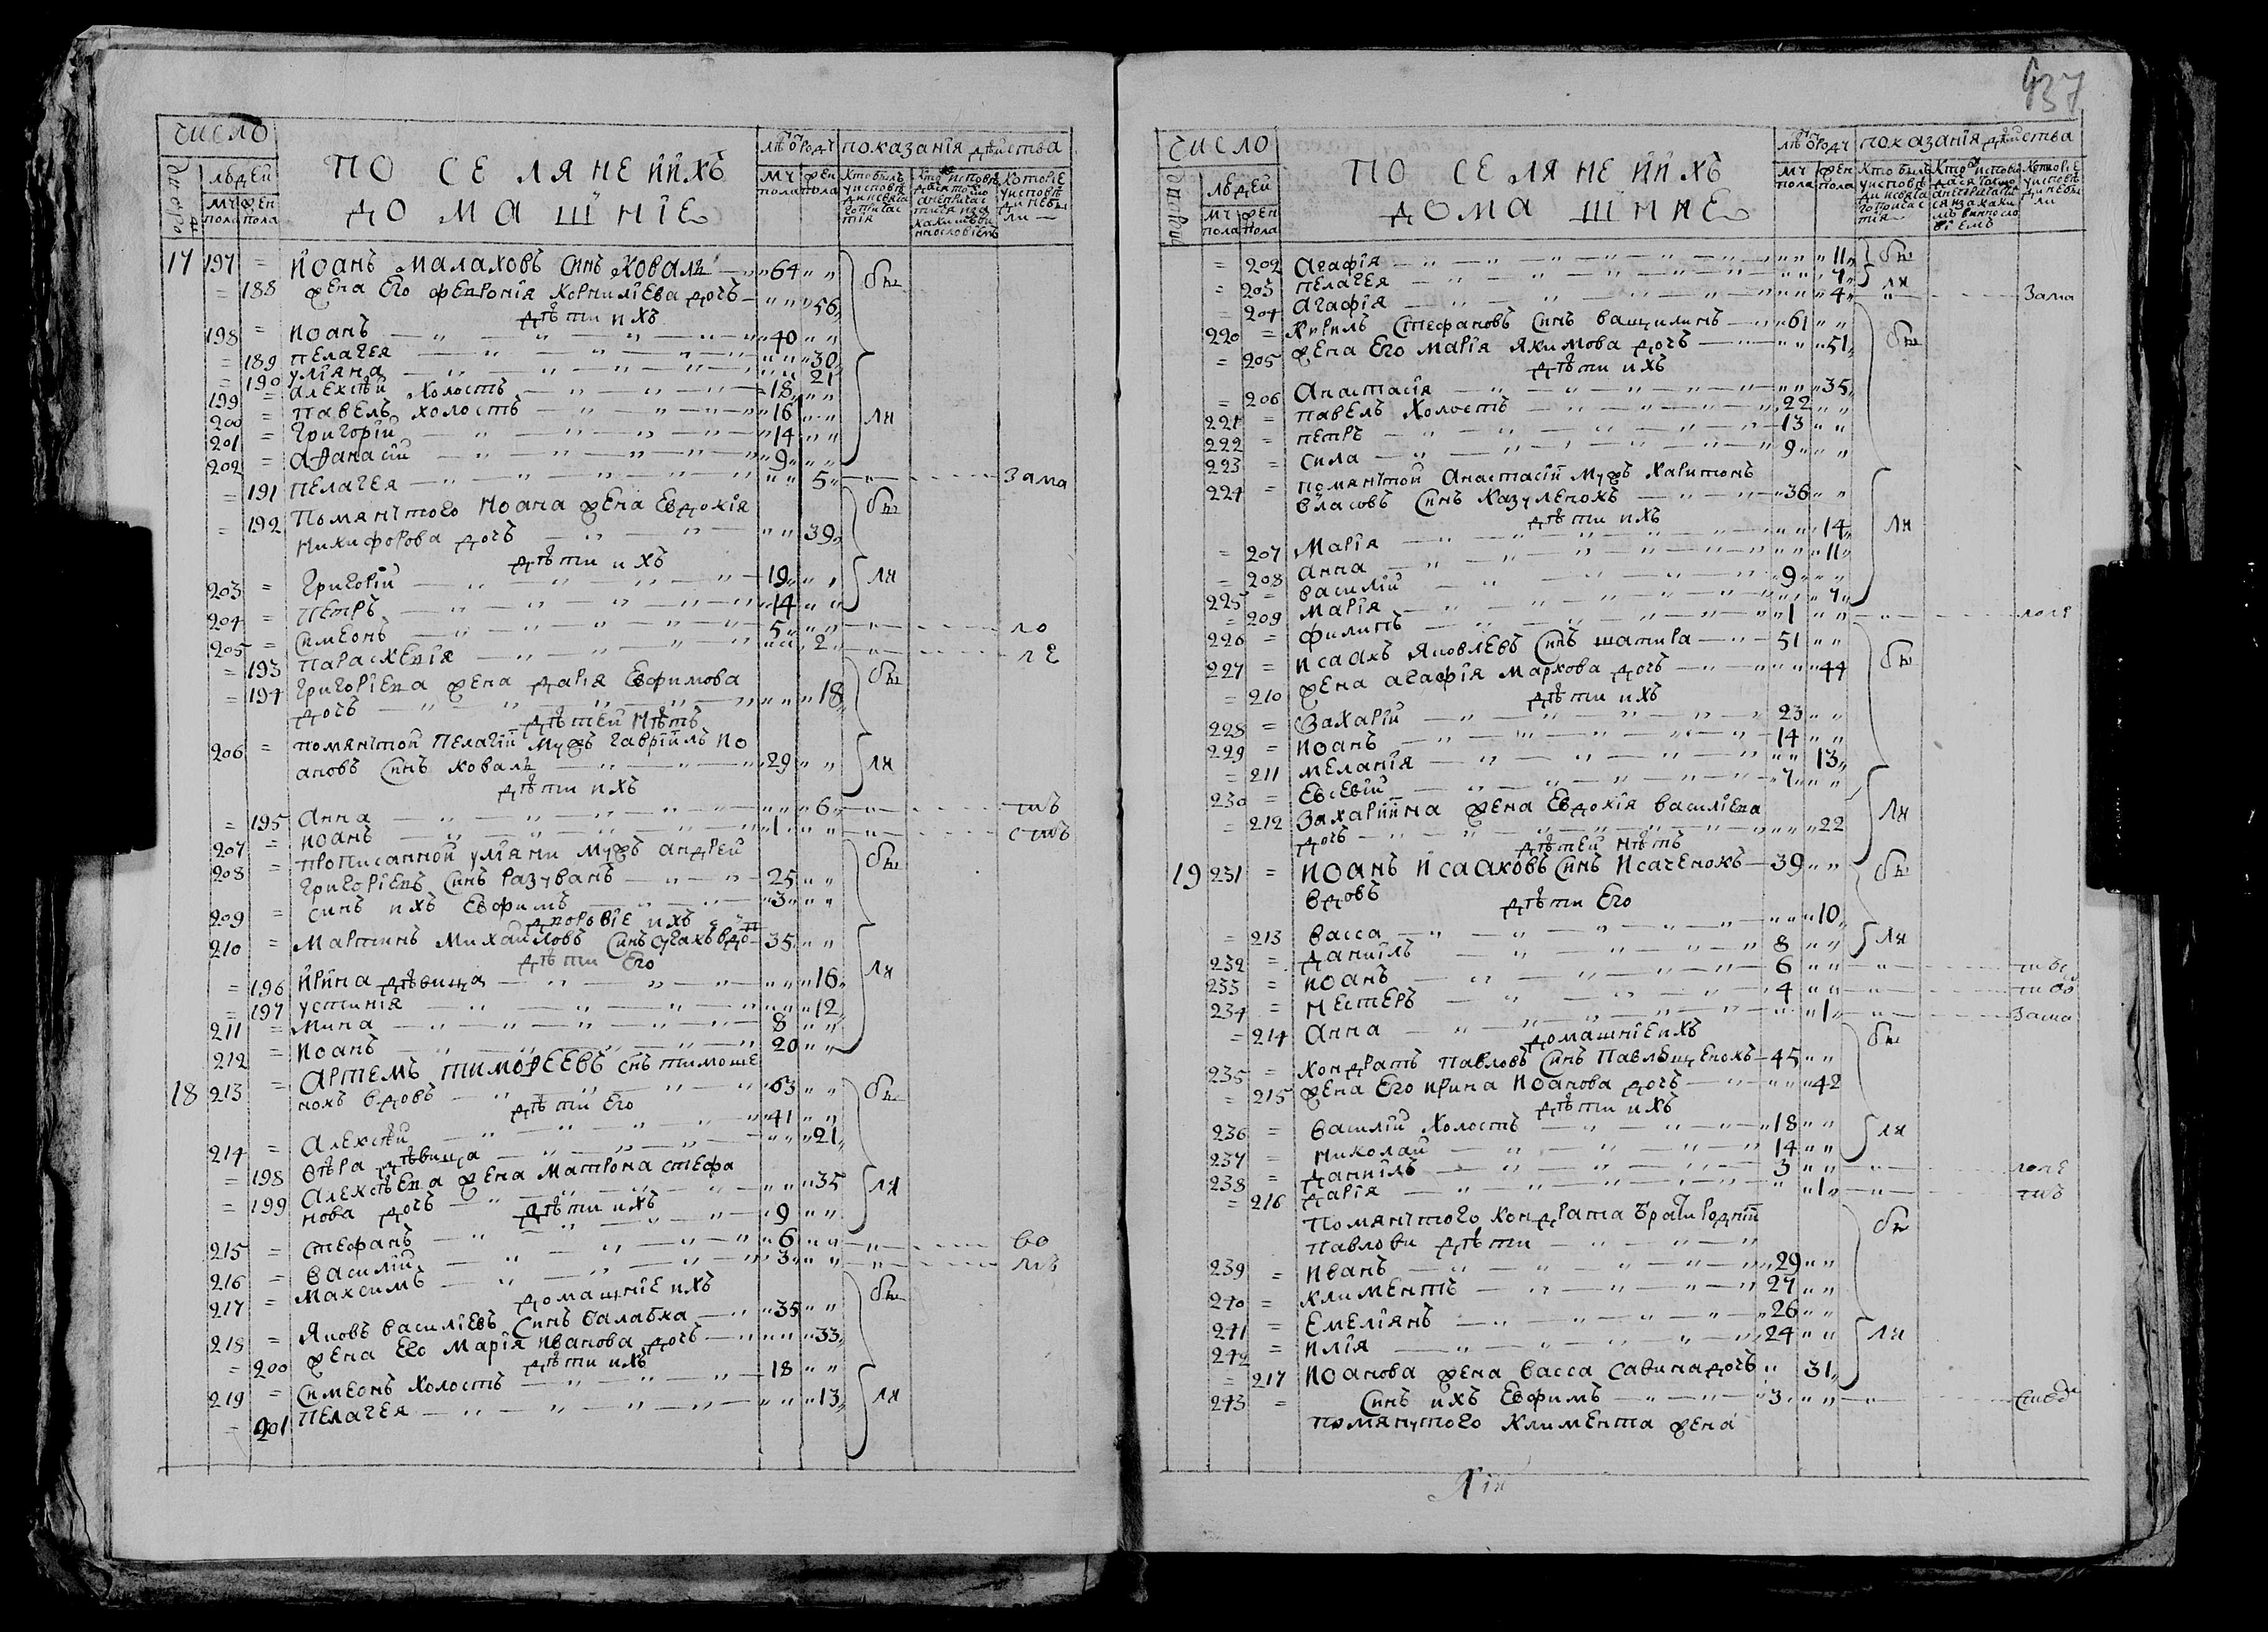 437
число
людей
мч пола
жен пола
ПО СЕ ЛЯНЕ ИИХЪ
ДО МА ШНІЕ
лѣ
показанія дѣйства
мч пола
жен пола
17 197 = Иоанъ Малаховъ Синъ Коваль 64
= 188 жена Его феѵронія Корниліева дочь 56
дѣти ихъ
198 = Иоанъ 40
= 189 пелагея 30
= 190 уліяна 21
199 = алексѣй Холостъ 18
200 = павелъ холостъ 16
201 = Григорій 14
202 = аѳанасій 9
= 191 пелагея 5 Зама
= 192 Помянѣтого Иоана жена Евдокія
Никифорова дочь 39
дѣти ихъ
203 = Григорій 19
204 = Петръ 14
205 = Симеонъ 5 ло
= 193 параскевія 2 ле
= 194 Григоріева жена Дарія Евфимова
дочь 18
дѣтей нѣтъ
206 = помянѣтой Пелагіи Мужъ Гавріилъ Ио
ановъ Синъ Коваль 29
дѣти ихъ
= 195 Анна 6
207 = Иоанъ 1
208 = прописанной уліяни Мужъ андрей
Григоріевъ Синъ Разуванъ 25
209 = синъ ихъ Евфимъ 3
дворовіе ихъ
210 = Мартинъ Михайловъ Синъ 35
дѣти Его
= 196 Ирина дѣвица 16
= 197 устинія 12
211 = Мина 8
212 = Иоанъ 20
18 213 = Артемъ тимоѳеевъ снъ тимоше
нокъ вдовъ 63
дѣти Его
214 = Алексѣй 41
= 198 Вѣра дѣвица 21
= 199 Алексѣева жена Матрона стефа
нова дочь 35
дѣти ихъ
215 = стефанъ 9
216 = василій 6 во
217 = Максимъ 3
домашніе ихъ
218 = Яковъ василіевъ Синъ балабка 35
= 200 жена Его Марія Иванова дочь 33
дѣти ихъ
219 = Симеонъ Холостъ 18
= 201 Пелагея 13
число
людей
мч пола
жен пола
ПО СЕ ЛЯНЕ ИИ ХЪ
ДОМА ШНИЕ
показанія дѣйства
мч пола
жен пола
= 202 Агафія 11
= 203 пелагея 7
= 204 Агафія 4 Зама
220 = Кирилъ Стефановъ Синъ ващилинъ 61
= 205 жена Его Марія Якимова дочь 51
дѣти ихъ
= 206 Анастасія 35
221 = павелъ Холостъ 22
222 = петръ 13
223 = сила 9
224 = помянѣтой Анастасіи Мужъ Харитонъ
власовъ Синъ Казуленокъ 36
дѣти ихъ
= 207 Марія 14
= 208 Анна 11
225 = василій 9
= 209 Марія 7
226 = Филипъ 1
227 = Исаакъ Яковлевъ Синъ шатира 51
= 210 жена агафія Маркова дочь 44
дѣти ихъ
228 = Захарій 23
229 = Иоанъ 14
= 211 меланія 13
230 = Евсевій 7
= 212 Захаріина жена Евдокія василіева
дочь 22
дѣтей нѣтъ
19 231 = Иоанъ Исааковъ Синъ Исаченокъ 39
вдовъ
дѣти Его
= 213 васса 10
232 = Даниілъ 8
233 = Иоанъ 6
234 = Нестеръ 4
= 214 Анна 1 Зама
домашніе ихъ
235 = Кондратъ Павловъ Синъ Павлющенокъ 45
= 215 жена Его Ирина Иоанова дочь 42
дѣти ихъ
236 = василій Холостъ 18
237 = Николай 14
238 = Даниілъ 3
= 216 Дарія 1
Помянѣтого Кондрата братъ родній
Павлови дѣти
239 = Иванъ 29
240 = климентъ 27
241 = Емеліянъ 26
242 = Илія 24
= 217 Иоанова жена васса савина дочь 31
243 = Синъ ихъ Евфимъ 3
помянутого Климента жена